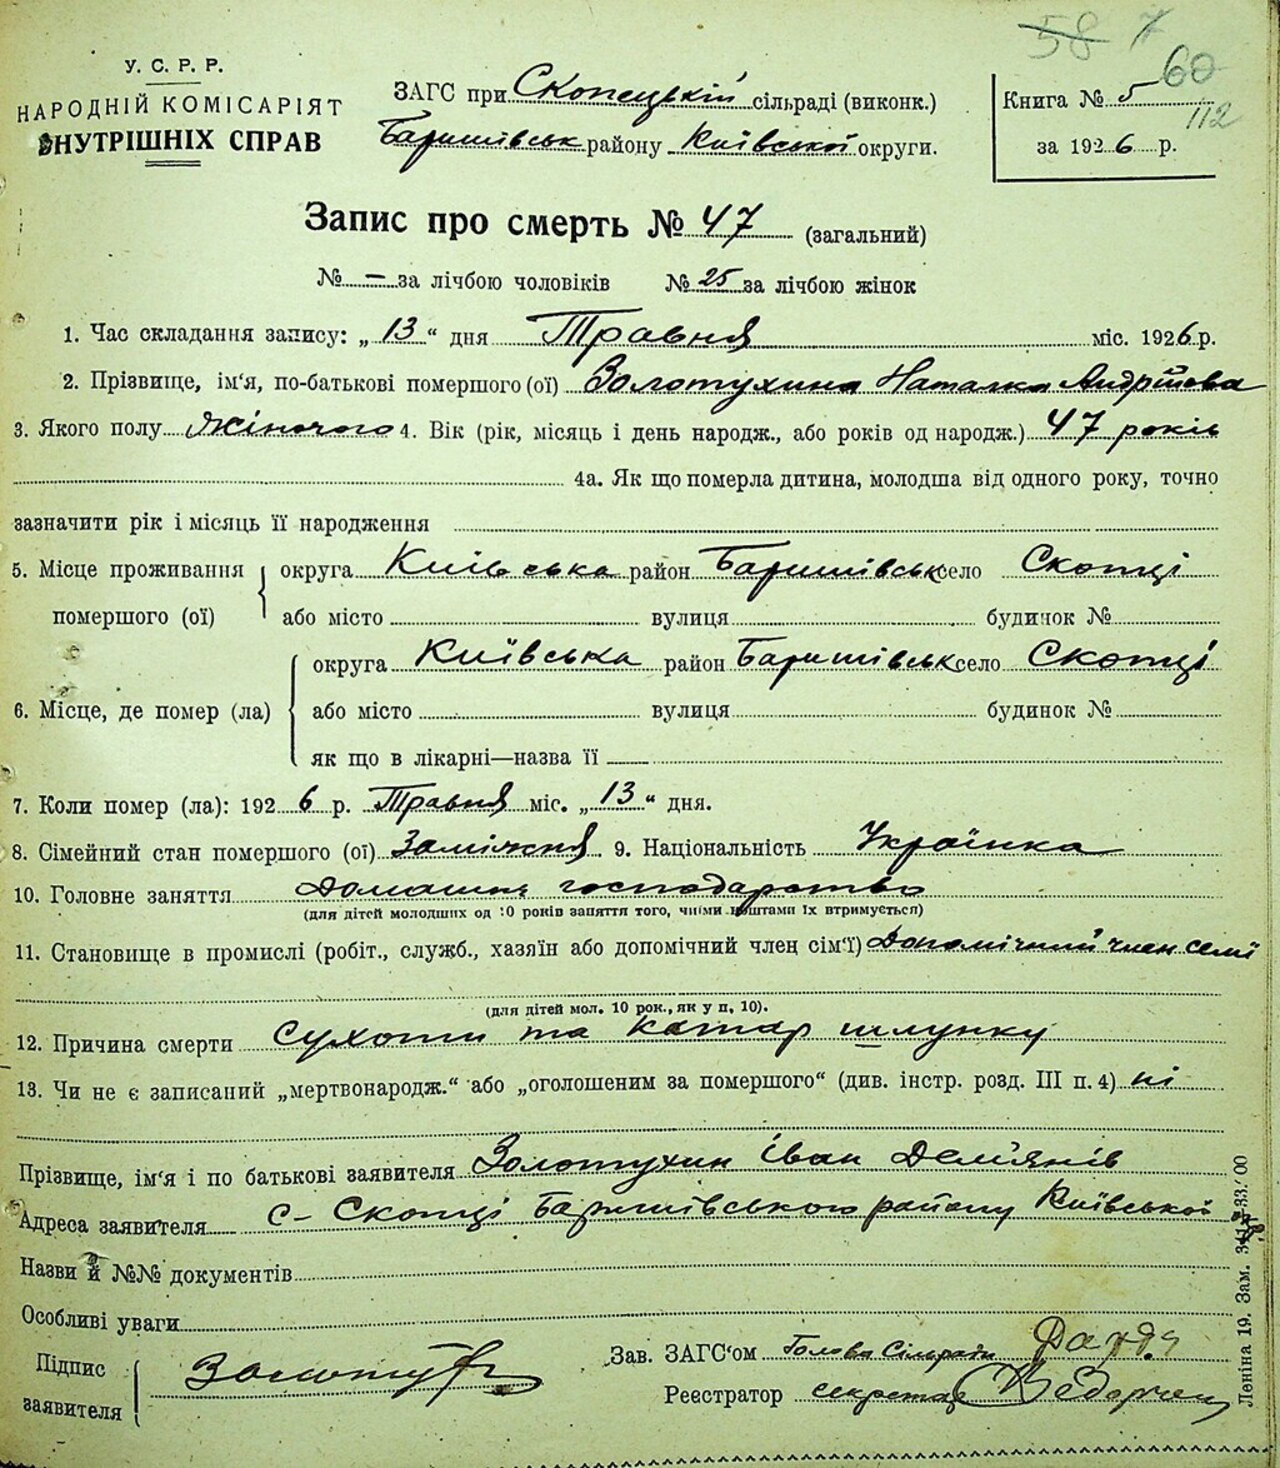 58 7
60
112
У. С. Р. Р.
НАРОДНІЙ КОМІСАРІЯТ
ВНУТРІШНІХ СПРАВ
ЗАГС при Скопецькій сільраді (виконк.)
Баришівськ району Київської округи.
Книга № 5
за 1926 р.
Запис про смерть № 47 (загальний)
№ — за лічбою чоловіків № 25 за лічбою жінок
1. Час складання запису: „13“ дня Травня міс. 1926 р.
2. Прізвище, ім'я, по-батькові помершого (ої) Золотухина Наталка Андрієва
3. Якого полу Жіночого 4. Вік (рік, місяць і день народж., або років од народж.) 47 років
4а. Як що померла дитина, молодша від одного року, точно
зазначити рік і місяць її народження
5. Місце проживання помершого (ої) округа Київська район Баришівськ село Скопці
або місто вулиця будинок №
6. Місце, де помер (ла) округа Київська район Баришівськ село Скопці
або місто вулиця будинок №
як що в лікарні—назва її
7. Коли помер (ла): 1926 р. Травня міс. „13“ дня.
8. Сімейний стан помершого (ої) Заміжня 9. Національність Українка
10. Головне заняття Домашнє господарство
(для дітей молодших од 10 років заняття того, чиїми коштами їх втримується)
11. Становище в промислі (робіт., служб., хазяїн або допомічний член сім'ї) Допомічний член семї
(для дітей мол. 10 рок., як у п. 10).
12. Причина смерти Сухоти та катар шлунку
13. Чи не є записаний „мертвонародж.“ або „оголошеним за помершого“ (див. інстр. розд. III п. 4) ні
Прізвище, ім'я і по батькові заявителя Золотухин Іван Дем'янів
Адреса заявителя с- Скопці Баришівського району Київської
Назви й №№ документів
Особливі уваги
Підпис заявителя Золотух
Зав. ЗАГС'ом Голова Сільради
Реєстратор секретар
Леніна 19. Зам.